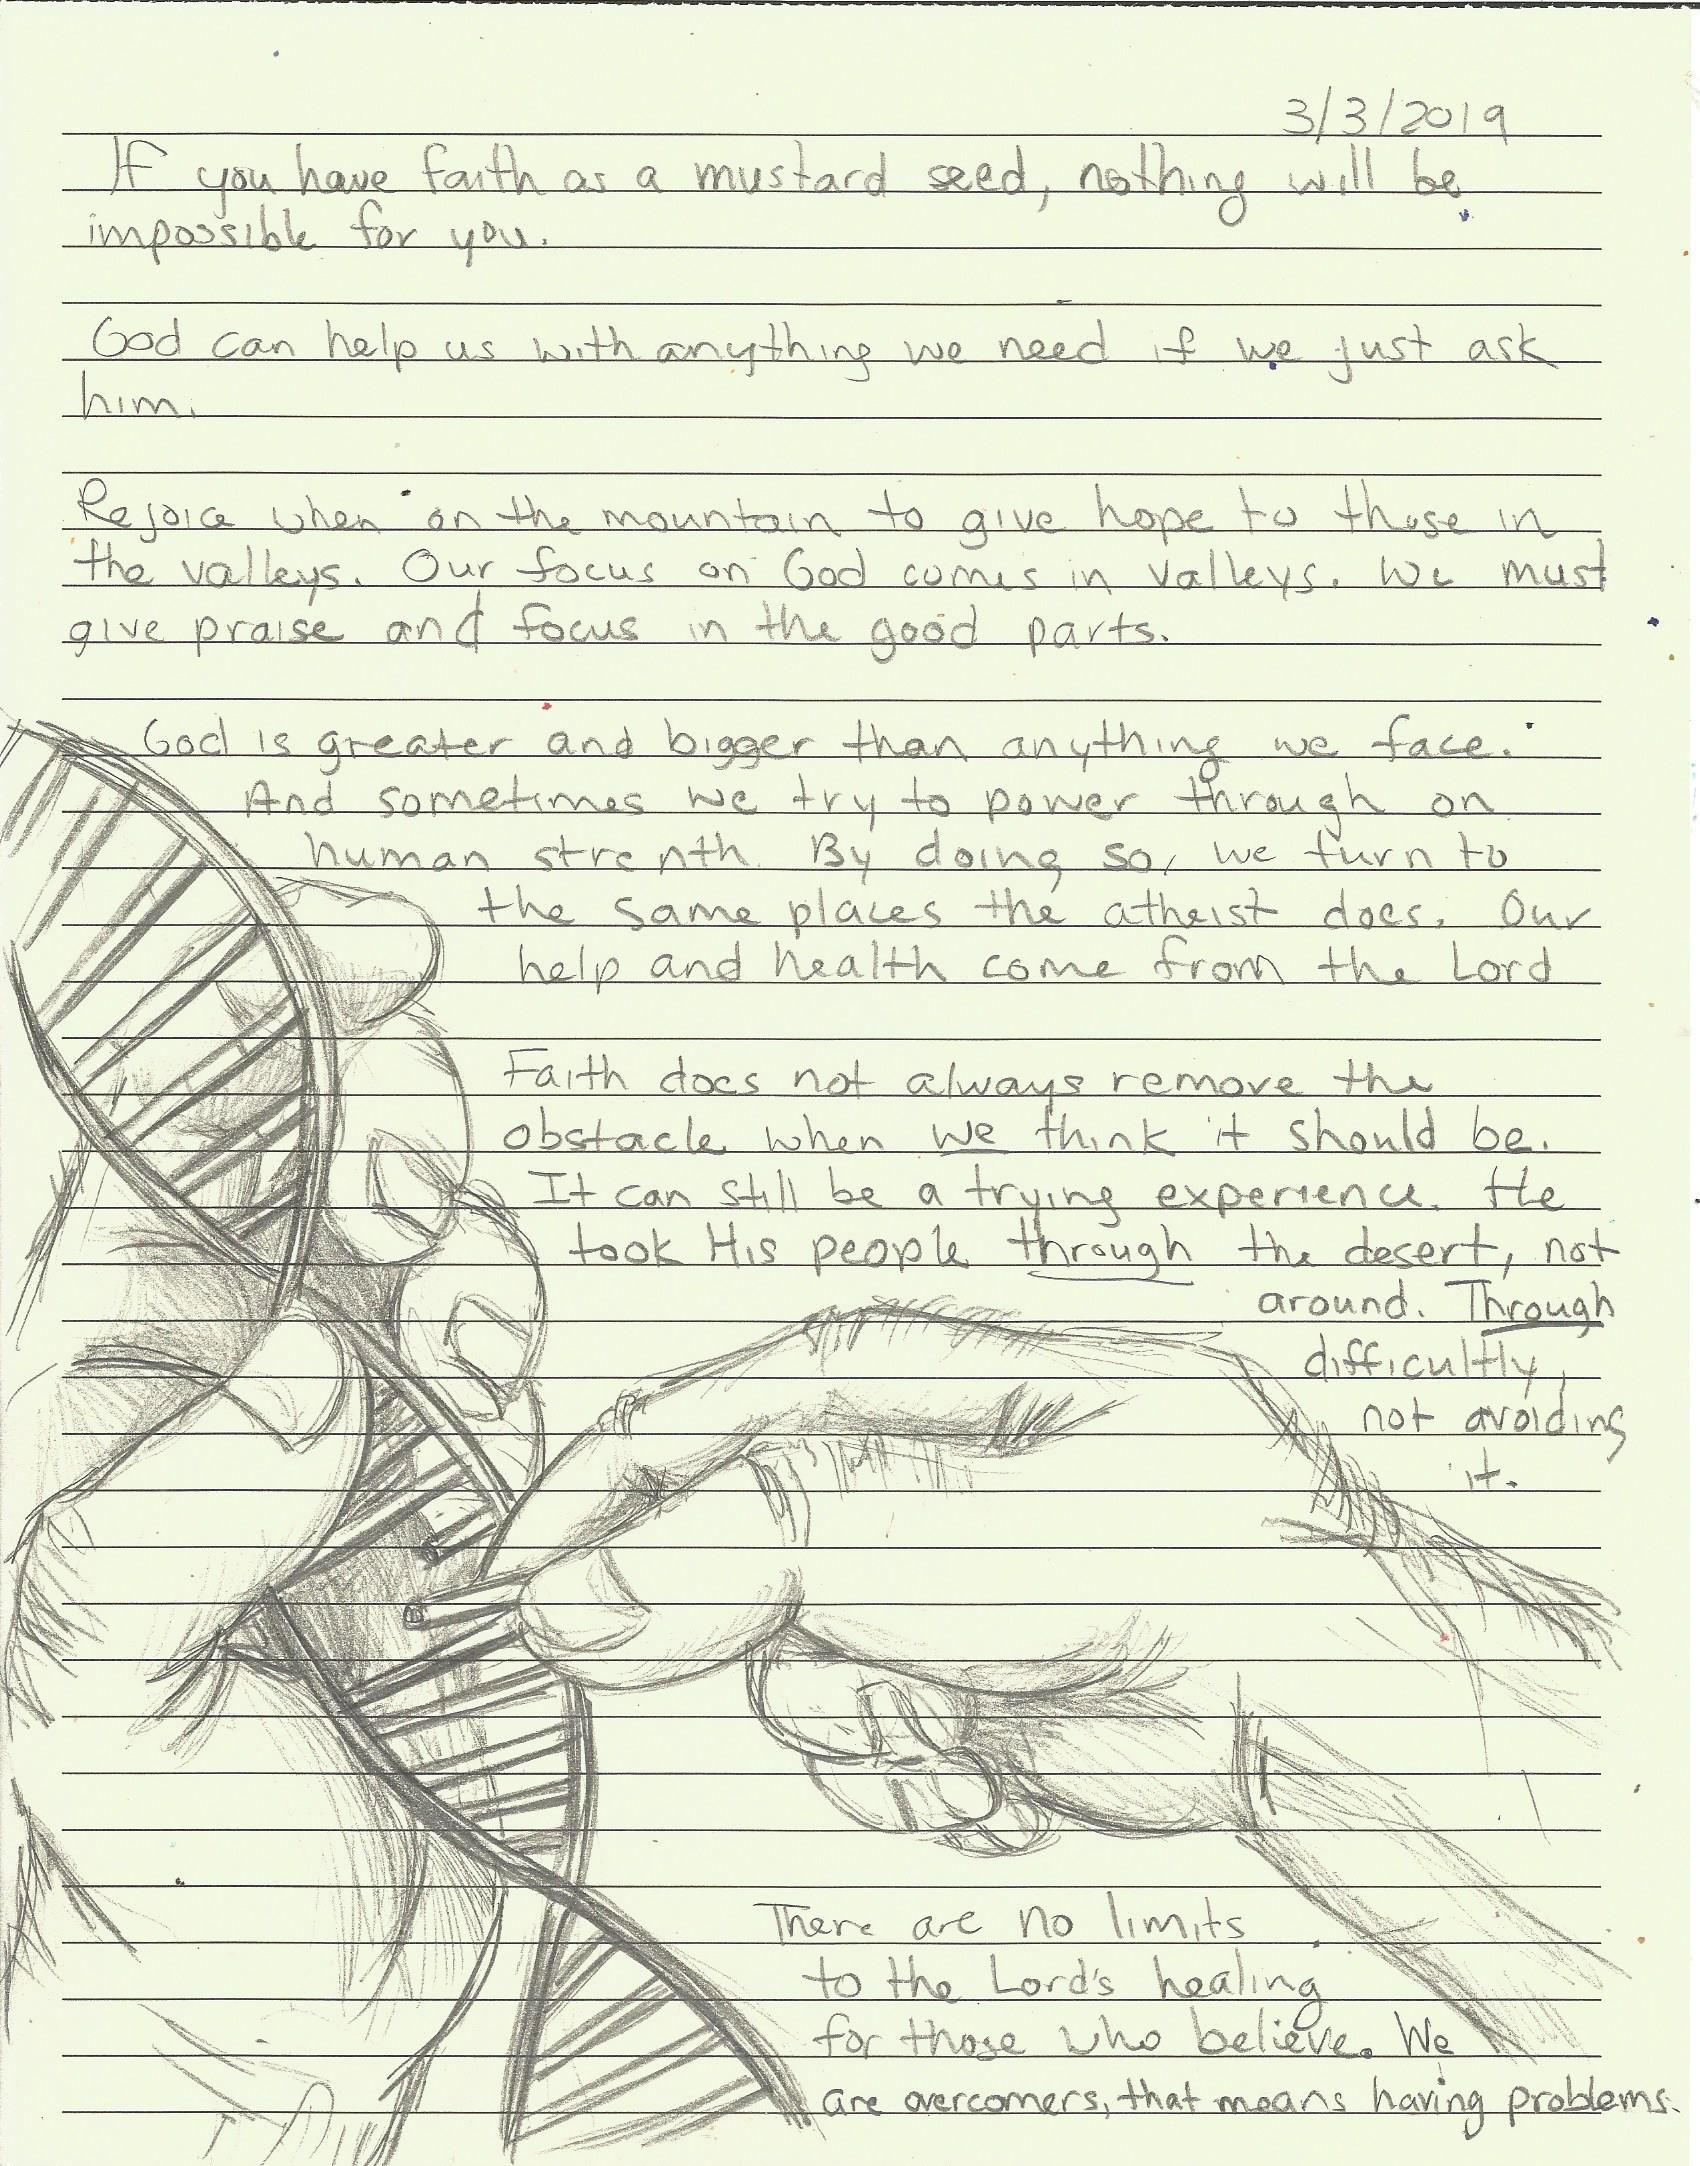 3/3/2019
If you have faith as a mustard seed, nothing will be
impossible for you.
God can help us with anything we need if we just ask
him.
Rejoice when on the mountain to give hope to those in
the valleys. Our focus on God comes in valleys. We must
give praise and focus in the good parts.
God is greater and bigger than anything we face.
And sometimes we try to power through on
human strenth. By doing so, we turn to
the same places the atheist does. Our
help and health come from the Lord
Faith does not always remove the
obstacle when we think it should be.
It can still be a trying experience. He
took His people through the desert, not
around. Through
difficultly,
not avoiding
it.
There are no limits
to the Lord's healing
for those who believe. We
are overcomers, that means having problems.